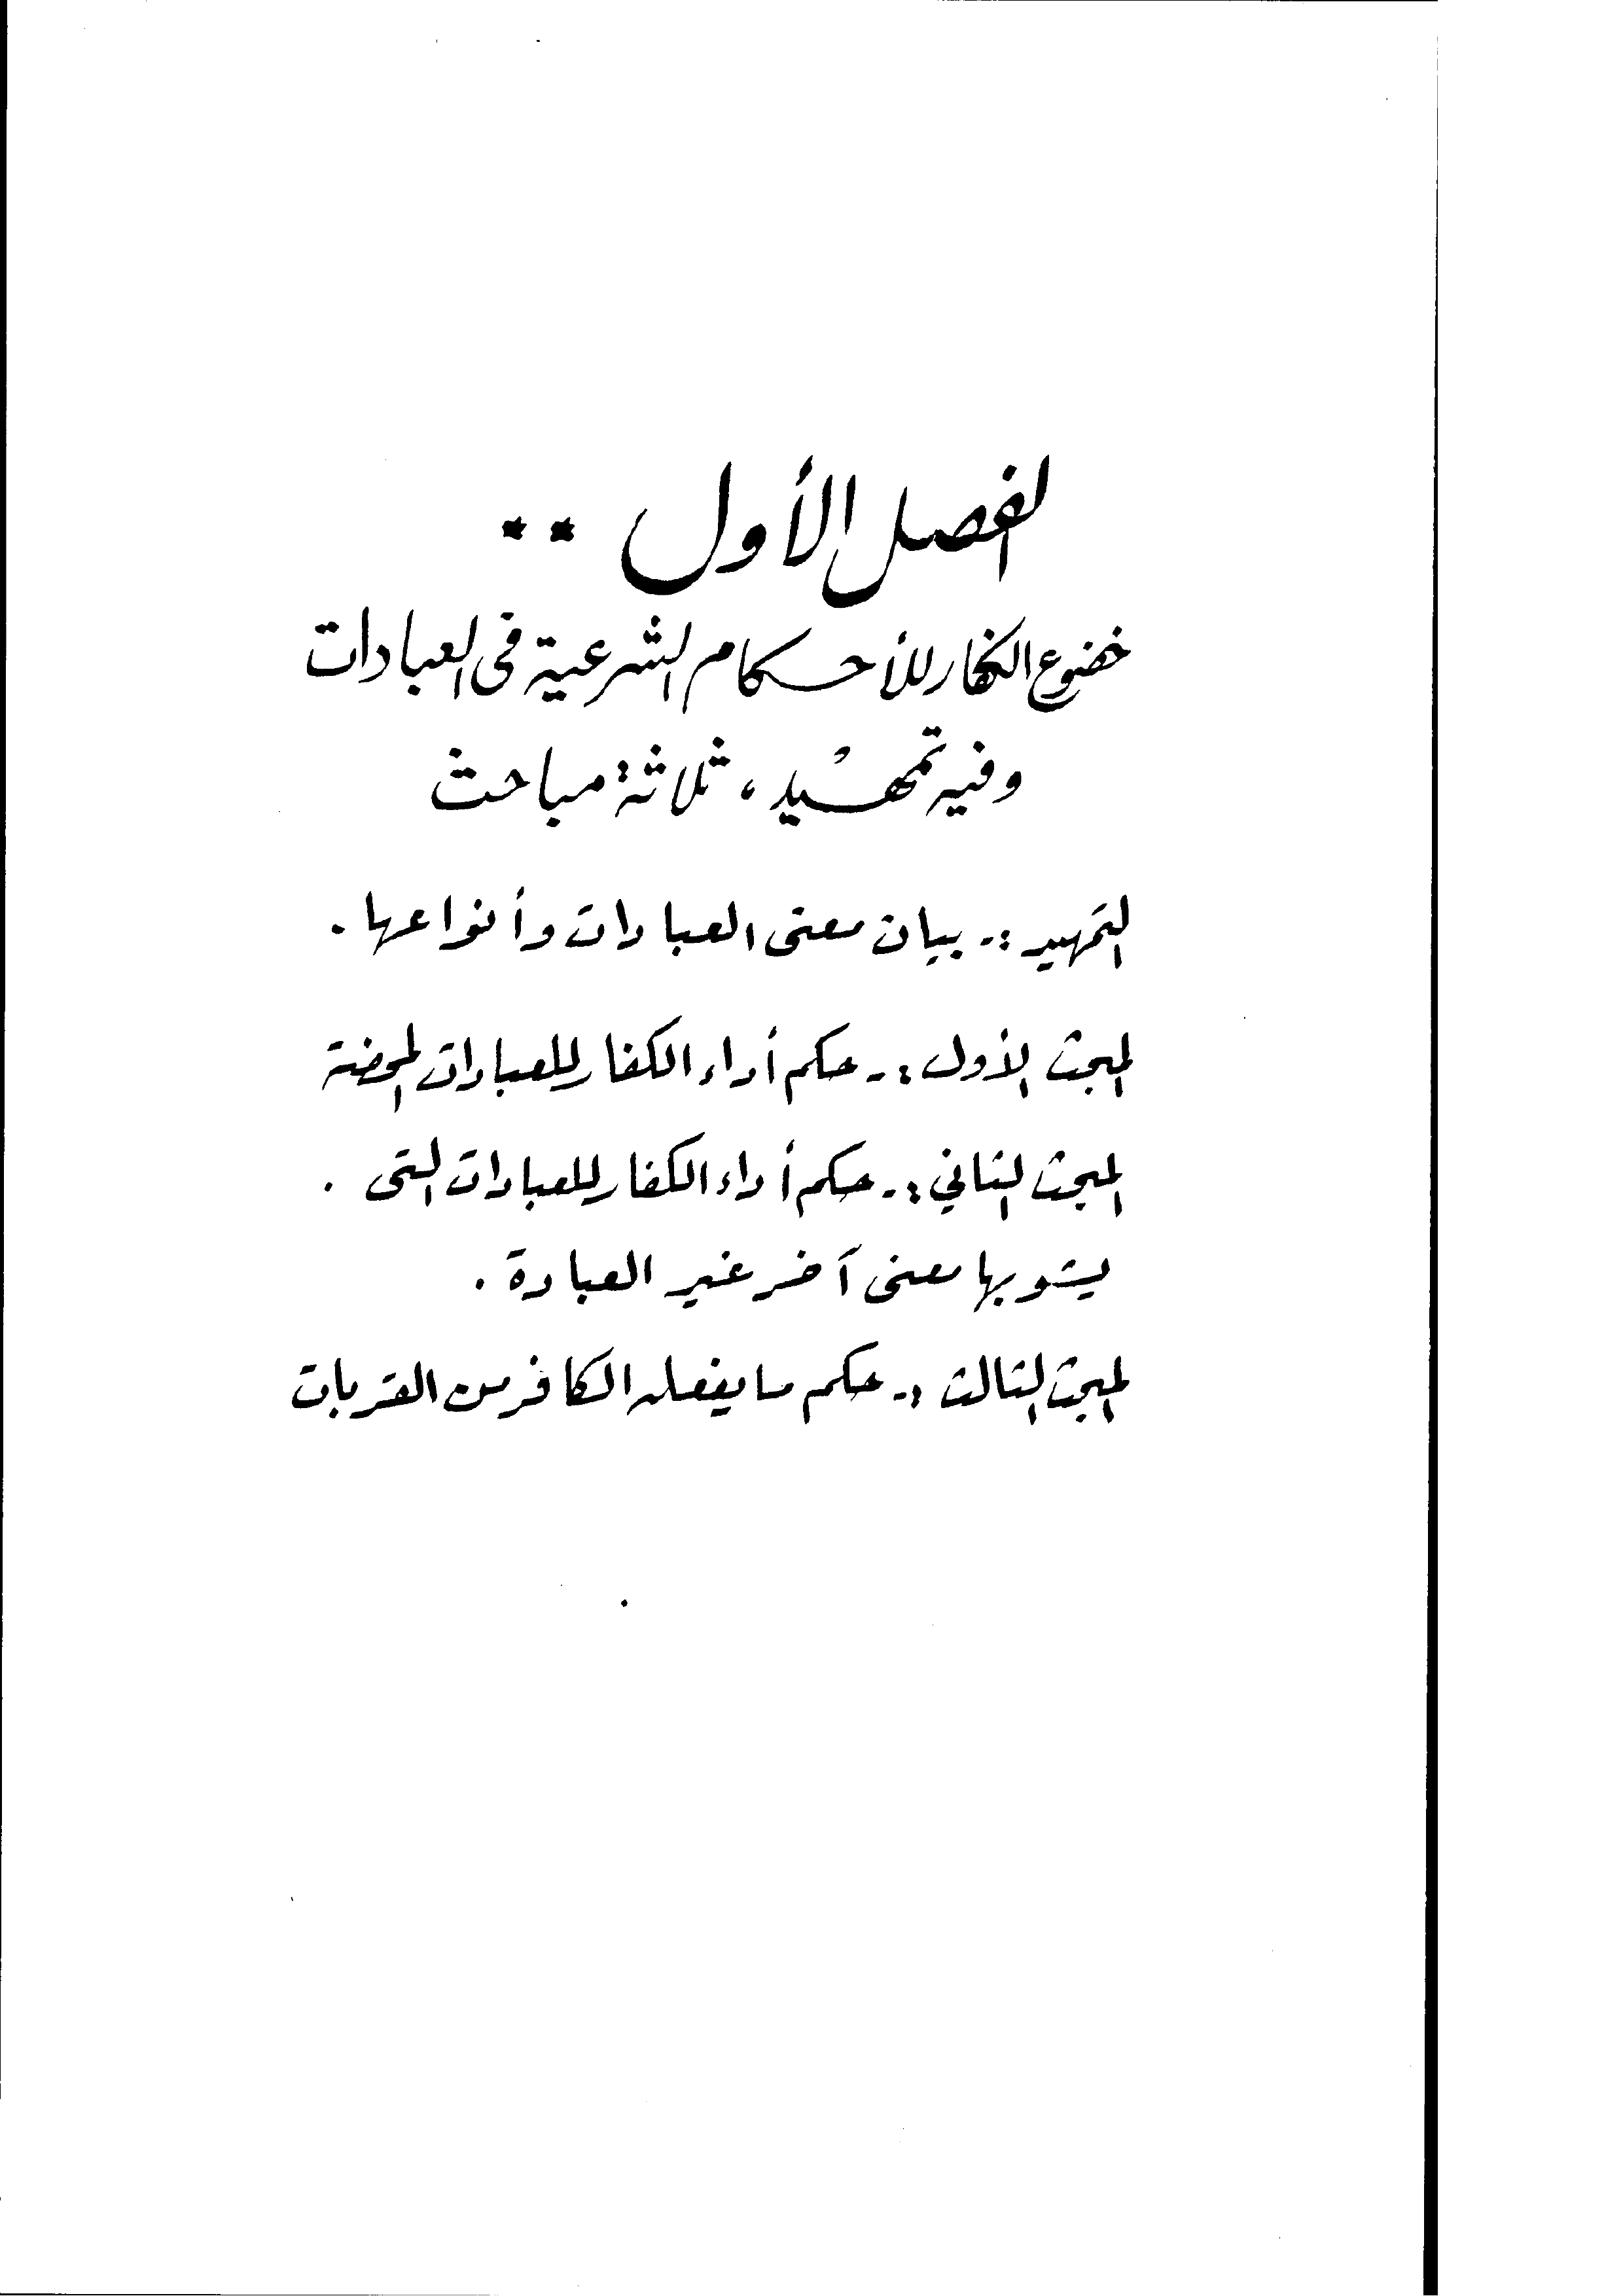 الفصل الأول **
خضوع الكفار للأحكام الشرعية فى العبادات
وفيه تمهيد ، ثلاثة مباحث
التمهيد :ـ بيان معنى العبادات وأنواعها .
المبحث الأول :ـ حكم أداء الكفار للعبادات المحضة
المبحث الثاني :ـ حكم أداء الكفار للعبادات التى .
يشوبها معنى آخر غير العبادة .
المبحث الثالث :ـ حكم ما يفعله الكافر من القربات